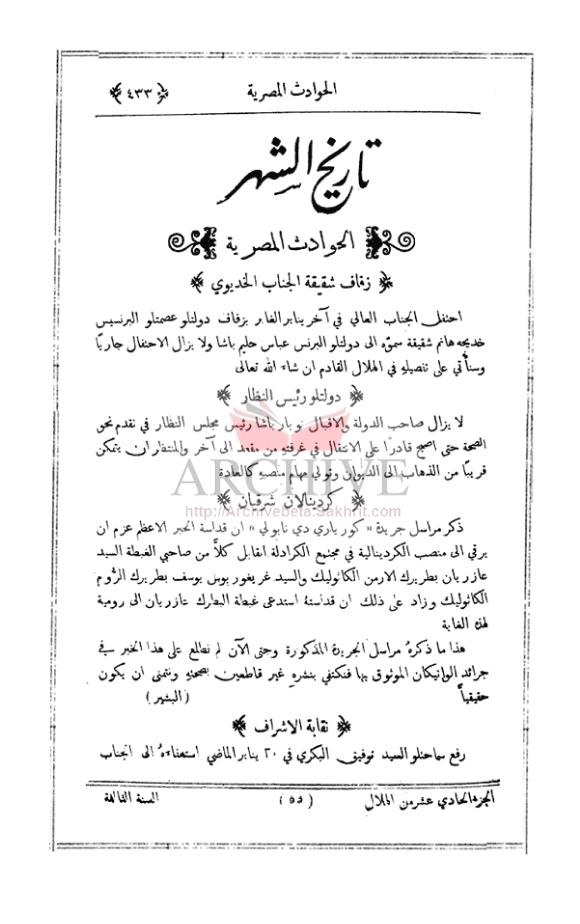 الحوادث المصرية
﴿ ٤٣٣ ﴾
تاريخ الشهر
الحوادث المصرية
﴿ زفاف شقيقة الجناب الخديوي ﴾
احتفل الجناب العالي في آخر يناير الغابر بزفاف دولتلو عصمتلو البرنسيس
خديجه هانم شقيقة سموّه الى دولتلو البرنس عباس حليم باشا ولا يزال الاحتفال جاريًا
وسنأتي على تفصيلهِ في الهلال القادم ان شاء الله تعالى
﴿ دولتلو رئيس النظار ﴾
لا يزال صاحب الدولة والاقبال نوبار باشا رئيس مجلس النظار في تقدم نحو
الصحة حتى اصبح قادرًا على الانتقال في غرفتهِ من مقعد الى آخر والمنتظر ان يتمكن
قريبًا من الذهاب الى الديوان وتولي مهام منصبهِ كالعادة
ARCHIVE
﴿ كردينالان شرقيان ﴾
http://Archivebeta.Sakhrit.com
ذكر مراسل جريدة « كور ياري دي نابولي » ان قداسة الحبر الاعظم عزم ان
يرقي الى منصب الكردينالية في مجتمع الكرادلة المقابل كلاًّ من صاحبي الغبطة السيد
عازريان بطريرك الارمن الكاثوليك والسيد غريغوريوس يوسف بطريرك الرُّوم
الكاثوليك وزاد على ذلك ان قداستهُ استدعى غبطة البطرك عازريان الى رومية
لهذه الغاية
هذا ما ذكرهُ مراسل الجريدة المذكورة وحتى الآن لم نطلع على هذا الخبر في
جرائد الواتيكان الموثوق بها فنكتفي بنشرهِ غير قاطعين بصحتهِ ونتمنى ان يكون
حقيقياً ( البشير )
﴿ نقابة الاشراف ﴾
رفع سماحتلو السيد توفيق البكري في ٢٠ يناير الماضي استعفاءهُ الى الجناب
الجزء الحادي عشر من الهلال
( ٥٥ )
السنة الثالثة